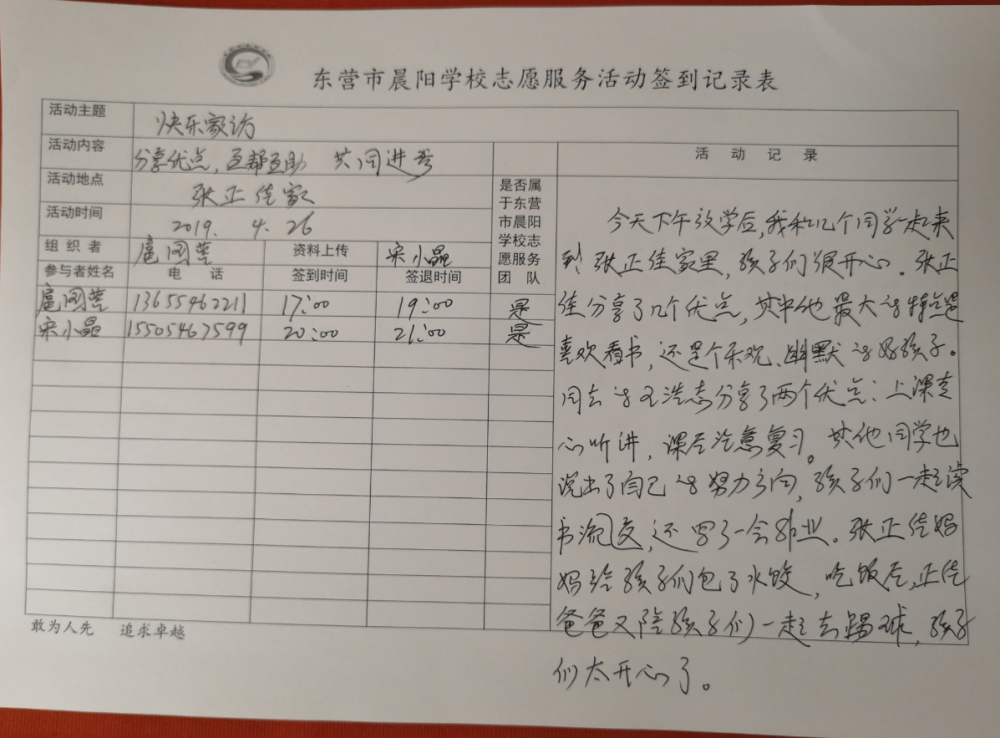 东营市晨阳学校志愿服务活动签到记录表
活动主题 快乐家访
活动内容 分享优点,互帮互助 共同进步
活动地点 张正佳家
活动时间 2019. 4. 26
组织者 扈国莹 资料上传 宋小晶
参与者姓名 电话 签到时间 签退时间 是否属于东营市晨阳学校志愿服务团队
扈国莹 13655462211 17:00 19:00 是
宋小晶 15505467599 20:00 21:00 是
活动记录
今天下午放学后,我和几个同学一起来
到张正佳家里,孩子们很开心。张正
佳分享了几个优点,其中他最大的特点是
喜欢看书,还是个乐观、幽默的好孩子。
同去的王浩志分享了两个优点:上课专
心听讲,课后注意复习。其他同学也
说出了自己的努力方向,孩子们一起读
书流交,还写了一会作业。张正佳妈
妈给孩子们包了水饺,吃饭后,正佳
爸爸又陪孩子们一起去踢球,孩子
们太开心了。
敢为人先 追求卓越